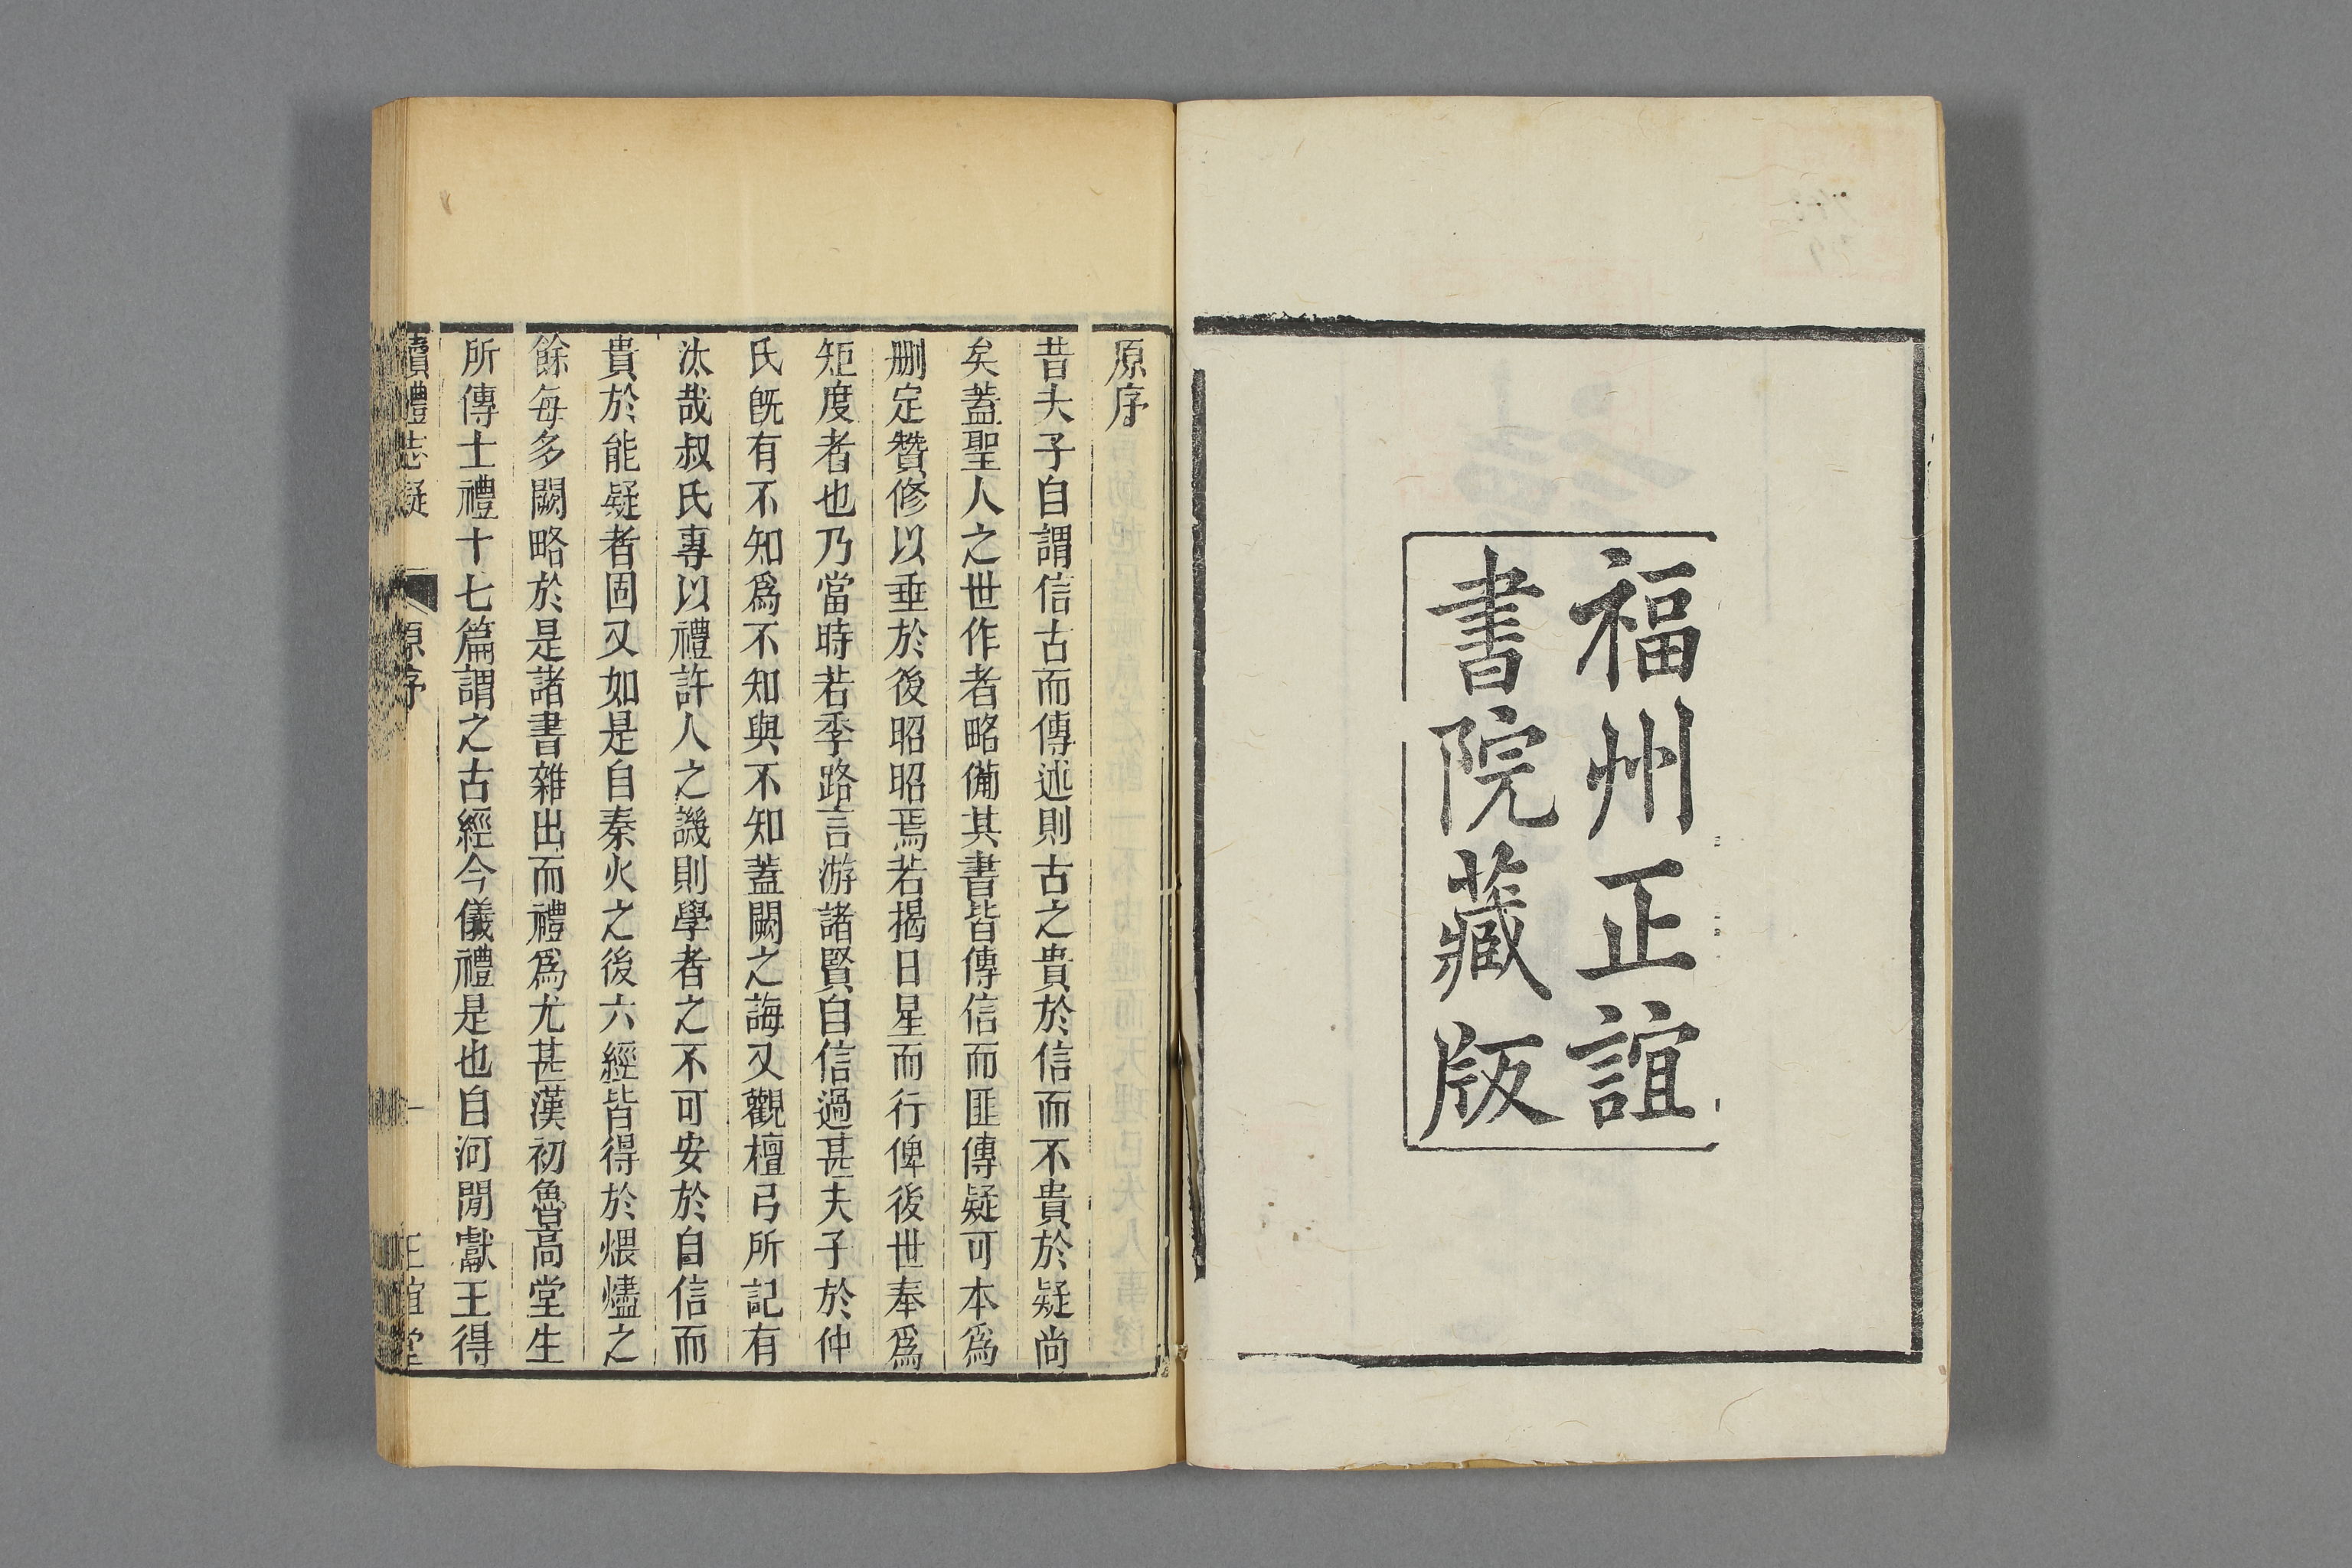 福州正誼
書院藏版
原序
昔夫子自謂信古而傳述則古之貴於信而不貴於疑尚
矣蓋聖人之世作者略備其書皆傳信而匪傳疑可本爲
刪定贊修以垂於後昭昭焉若揭日星而行俾後世奉爲
矩度者也乃當時若季路言游諸賢自信過甚夫子於仲
氏旣有不知爲不知與不知蓋闕之誨又觀檀弓所記有
汰哉叔氏專以禮許人之譏則學者之不可安於自信而
貴於能疑者固又如是自秦火之後六經皆得於煨燼之
餘每多闕略於是諸書雜出而禮爲尤甚漢初魯高堂生
所傳士禮十七篇謂之古經今儀禮是也自河閒獻王得
讀禮志疑 原序 一 正誼堂